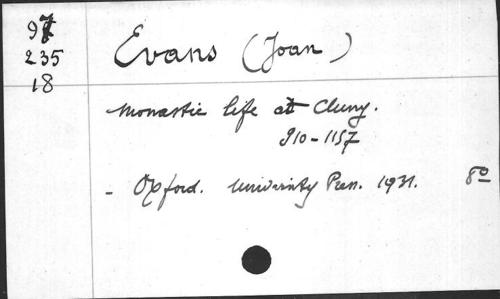 97
235
18
Evans (Joan)
Monastic life at Cluny.
910-1157
- Oxford. University Press. 1931. 8°